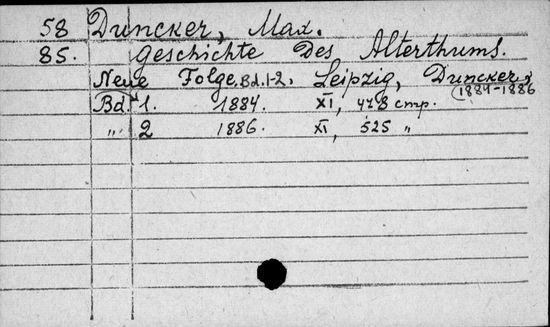 58 Duncker, Max.
85. Geschichte des Alterthums.
Neue Folge. Bd. 1-2. Leipzig, Duncker,
1884-1886
Bd. 1. 1884. XI, 478 стр.
„ 2 1886. XI, 525 „